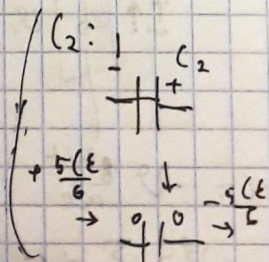 C₂: 1
- + C₂
+ 5Cε/6 → 0 0 - 5Cε/6 →